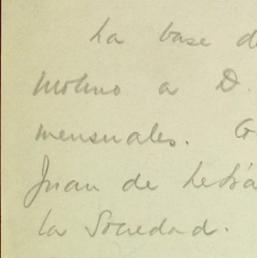 La base d
Molino a D.
mensuales. G
Juan de Lesa
la Sociedad.